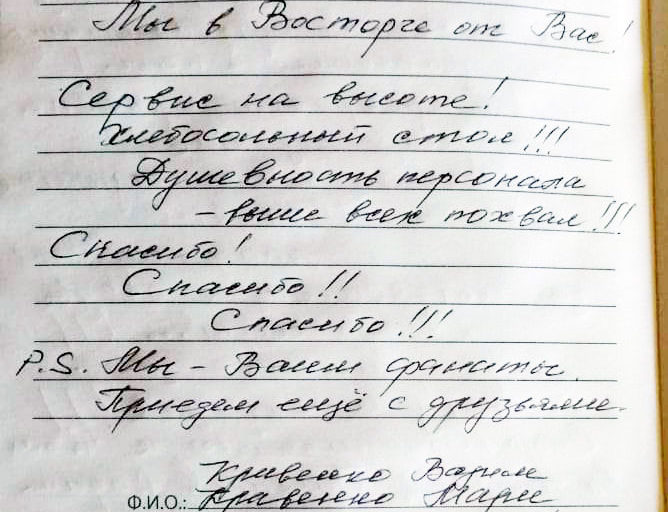 Мы в Восторге от Вас!
Сервис на высоте!
Хлебосольный стол!!!
Душевность персонала
– выше всех похвал!!!
Спасибо!
Спасибо!!
Спасибо!!!
P.S. Мы – Ваши фанаты.
Приедем ещё с друзьями.
Кривенко
Ф.И.О.: Кравенко